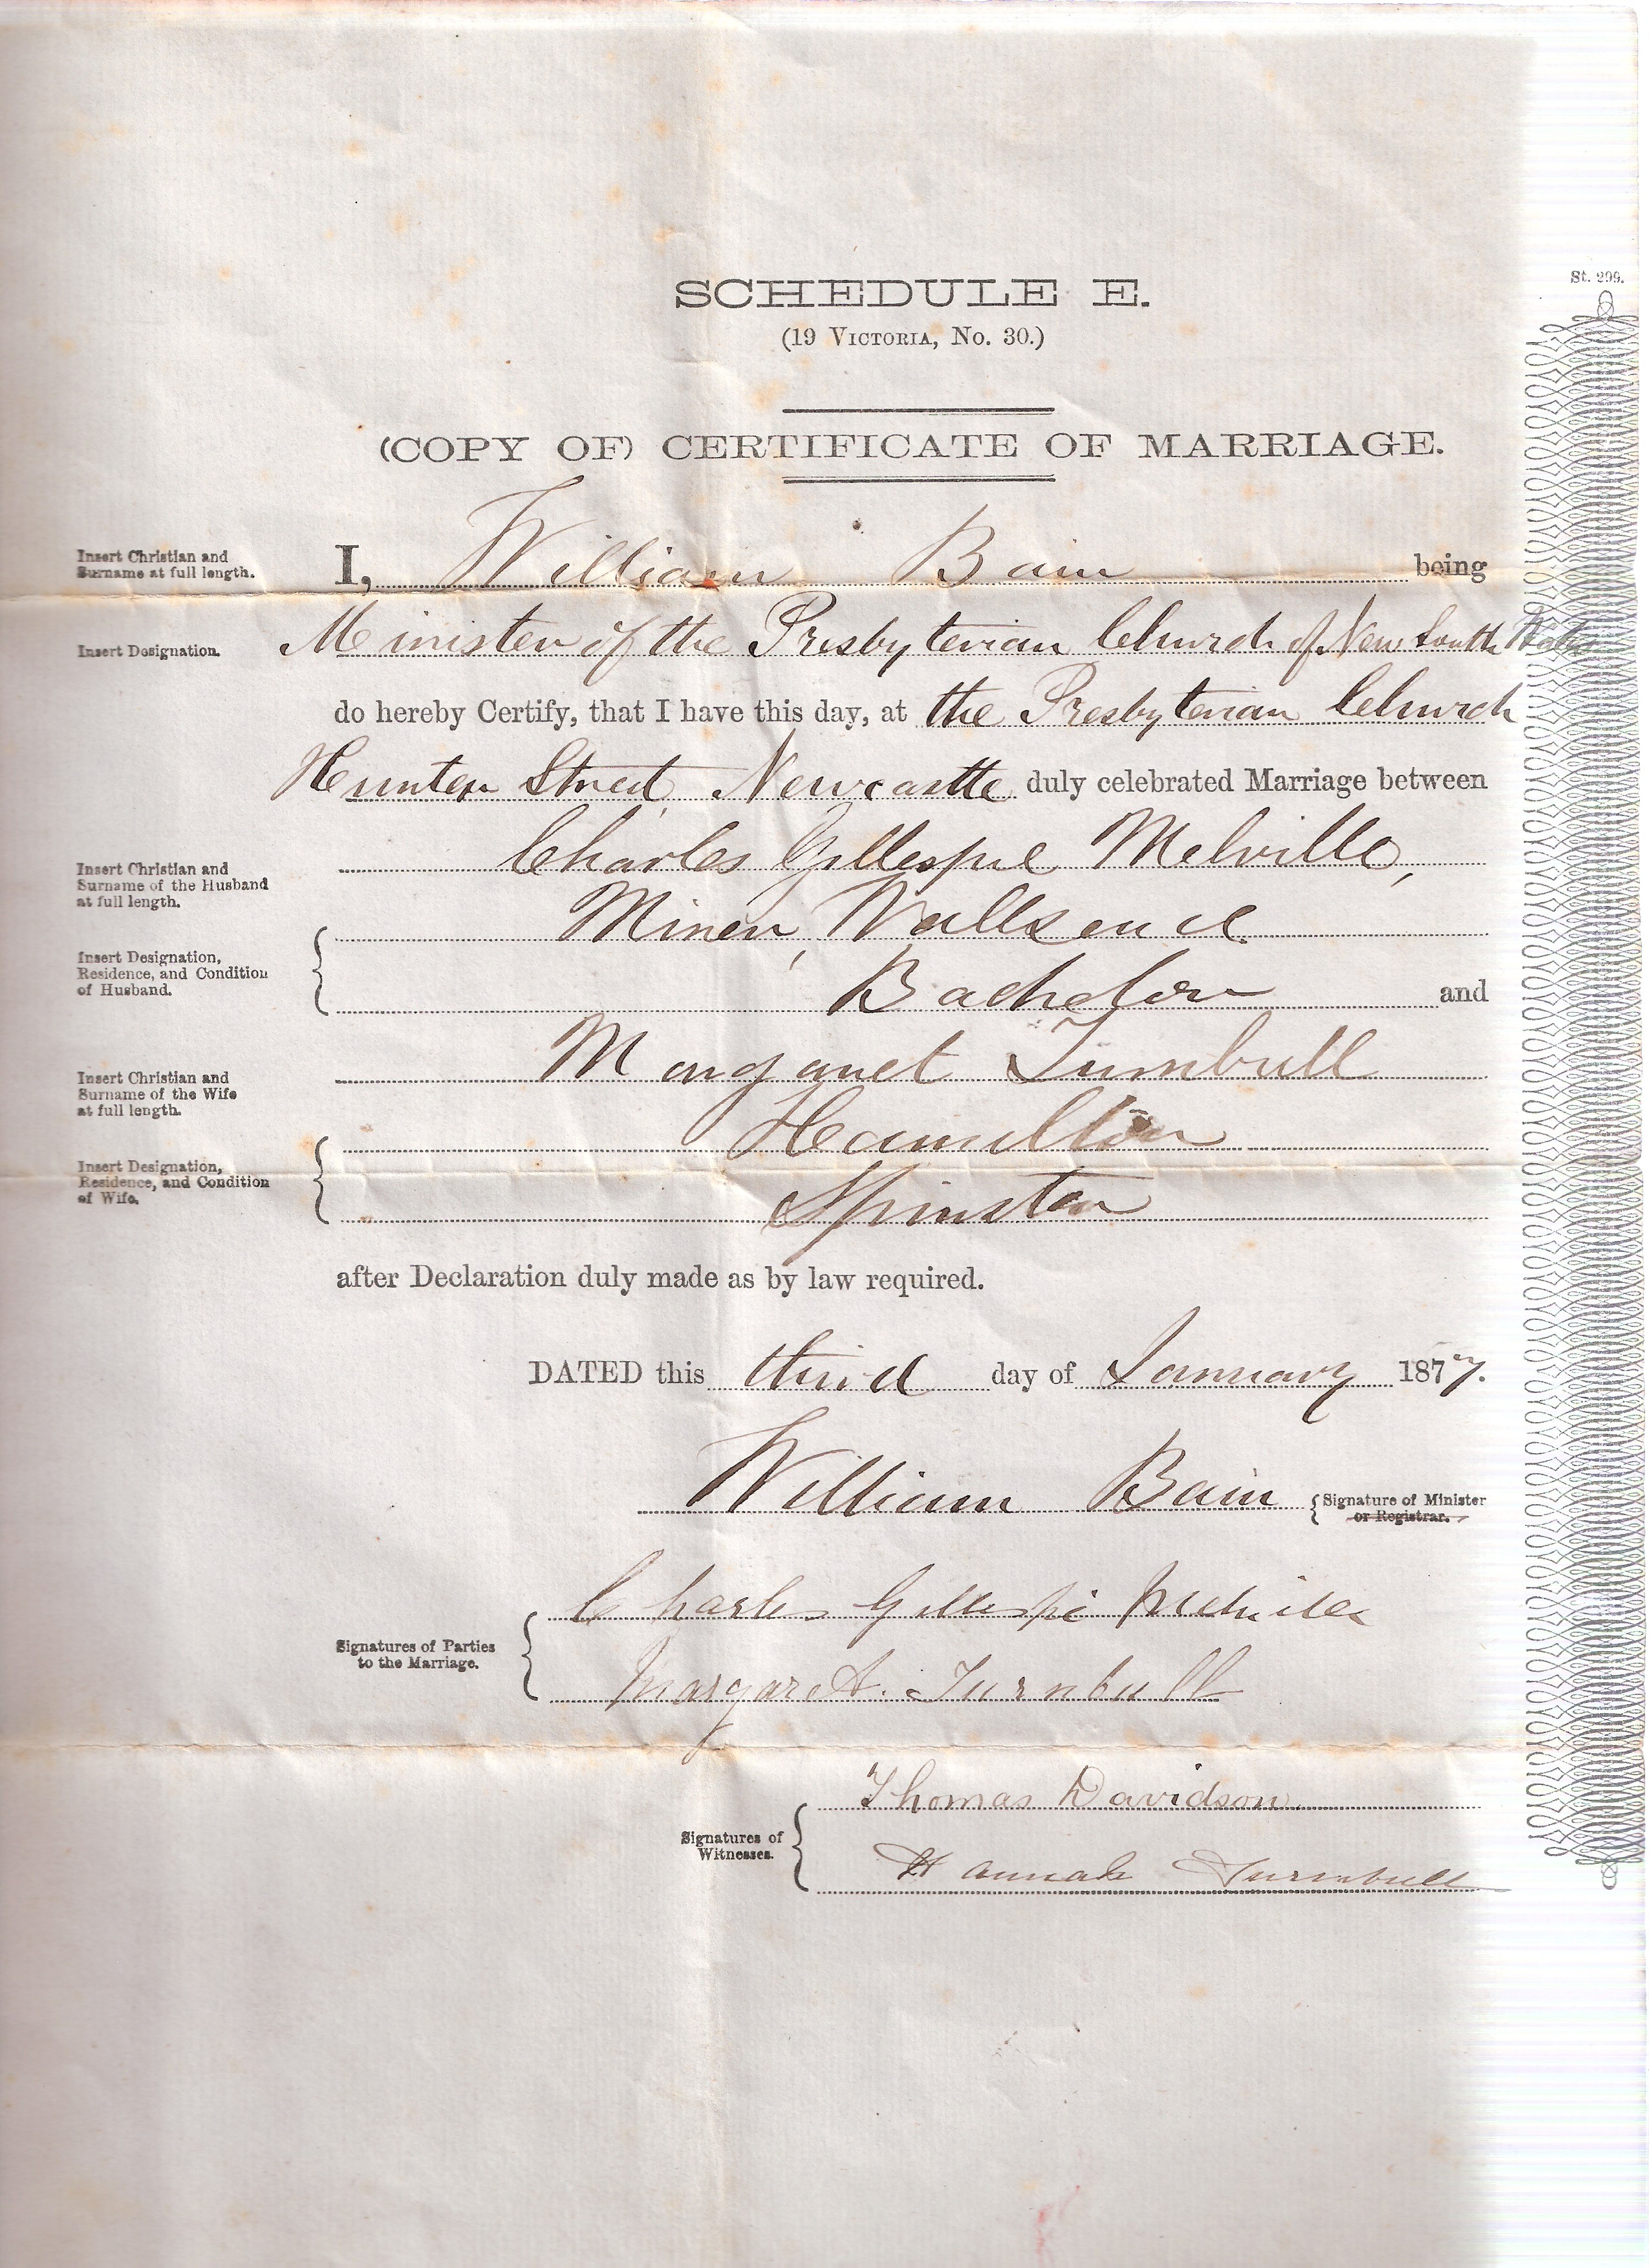 St. 299.
SCHEDULE E.
(19 VICTORIA, No. 30.)
(COPY OF) CERTIFICATE OF MARRIAGE.
Insert Christian and
Surname at full length.
I, William Bain being
Insert Designation.
Minister of the Presbyterian Church of New South Wales
do hereby Certify, that I have this day, at the Presbyterian Church
Hunter Street, Newcastle duly celebrated Marriage between
Insert Christian and
Surname of the Husband
at full length.
Charles Gillespie Melville,
Insert Designation,
Residence, and Condition
of Husband.
Miner, Wallsend.
Bachelor and
Insert Christian and
Surname of the Wife
at full length.
Margaret Turnbull
Insert Designation,
Residence, and Condition
of Wife.
Hamilton
Spinster
after Declaration duly made as by law required.
DATED this third day of January 1877.
William Bain
Signature of Minister
or Registrar.
Signatures of Parties
to the Marriage.
Charles Gillespie Melville
Margaret Turnbull
Signatures of
Witnesses.
Thomas Davidson
Hannah Turnbull